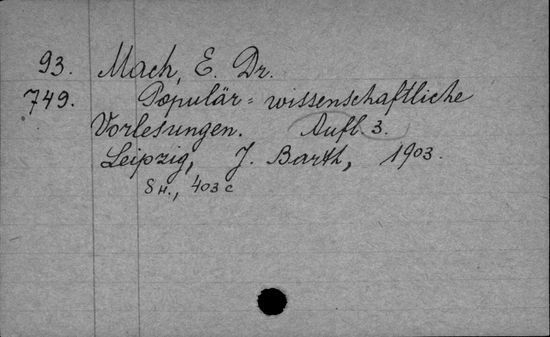 93. Mach, E. Dr.
749. Populär=wissenschaftliche
Vorlesungen. Aufl. 3.
Leipzig, J. Barth, 1903.
8 н., 403 с